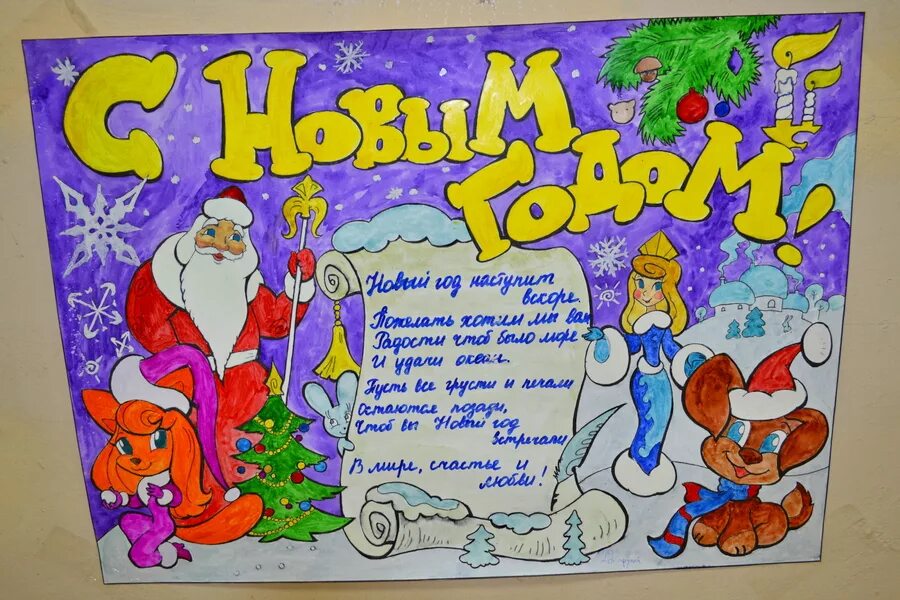 С Новым
Годом!
Новый год наступит
вскоре.
Пожелать хотим мы вам
Радости чтоб было море
И удачи океан.
Пусть все грусти и печали
Остаются позади,
Чтоб вы Новый год
встречали
В мире, счастье и
любви!